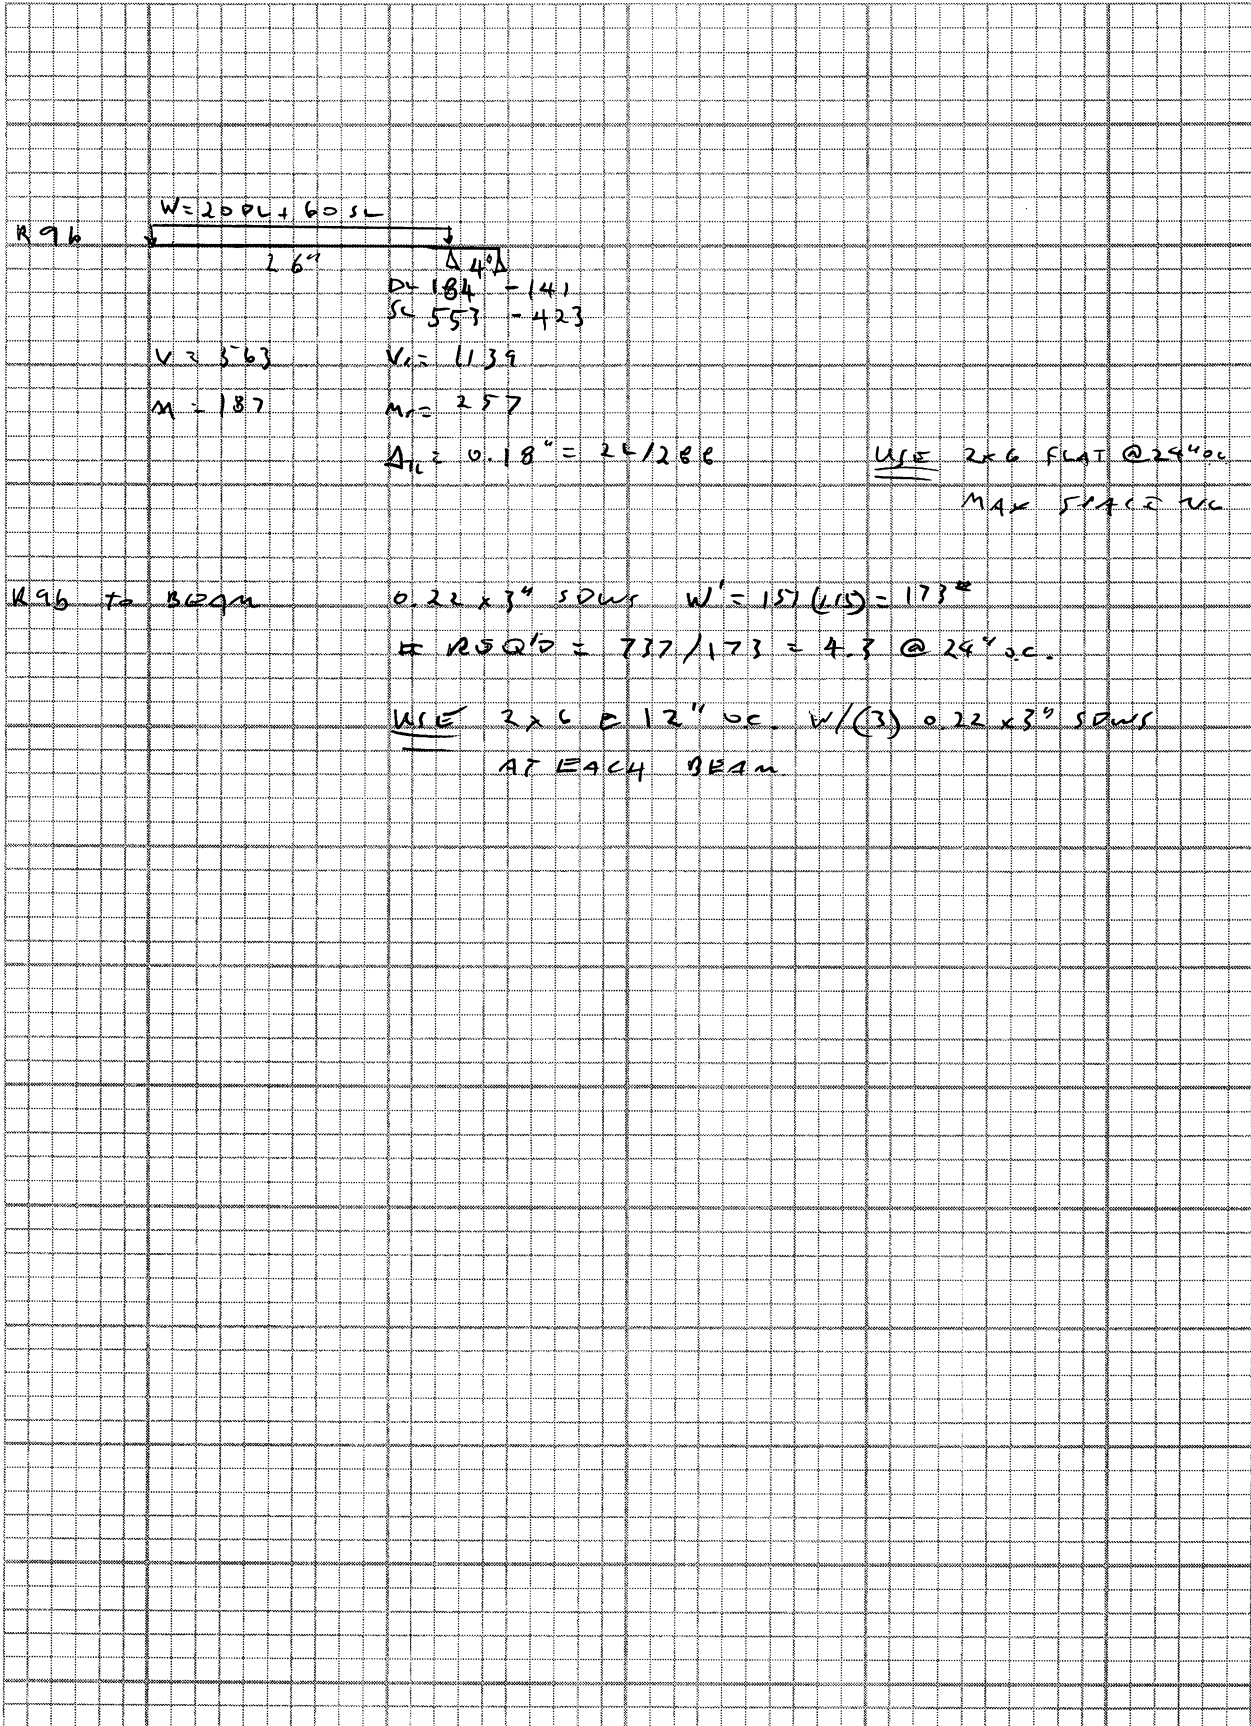 W=20DL+60SL
R9b
26"
4"
DL 184 -141
SL 553 -423
V = 563 Vr = 1139
M = 187 Mr = 257
= 0.18" = 2L/288 USE 2x6 FLAT @24"oc
MAX SPACE
R9b to BEAM 0.22 x 3" SDWS W' = 157(1.15) = 173#
# REQ'D = 737/173 = 4.3 @ 24" o.c.
USE 2x6 @ 12" oc. W/(3) 0.22 x3" SDWS
AT EACH BEAM